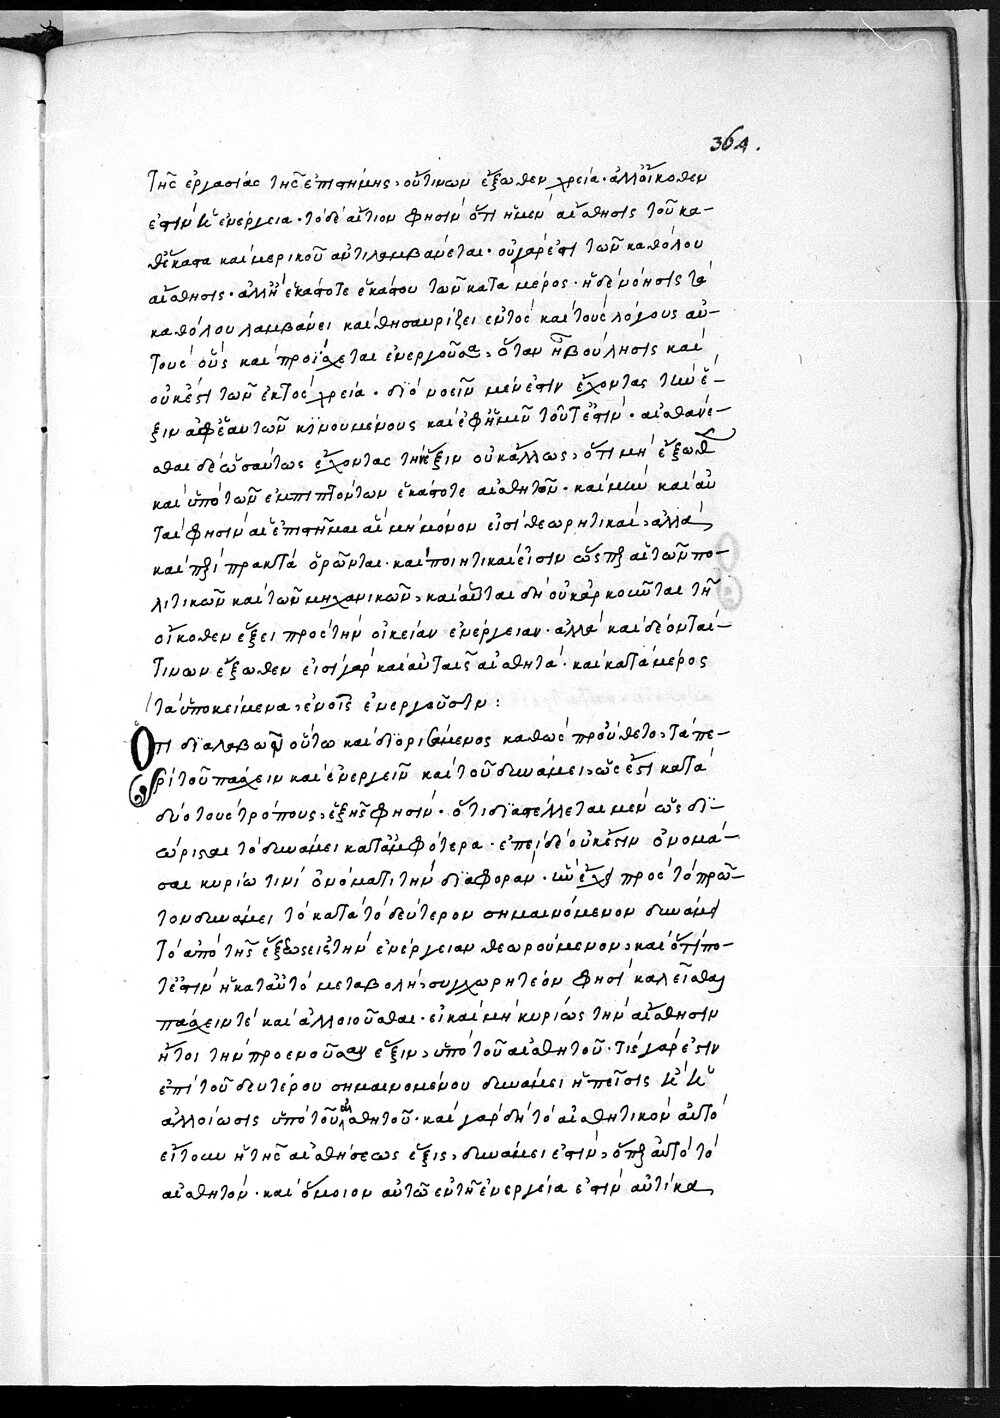 364.
τῆς ἐργασίας τῆς ἐπιστήμης, οὔτινων ἔξωθεν χρεία· ἀλλ' οἴκοθεν
ἐστὶν ἡ ἐνέργεια· τὸ δὲ αἴτιον φησὶν ὅτι ἡ μὲν αἴσθησις τοῦ κα-
θέκαστα καὶ μερικοῦ ἀντιλαμβάνεται· οὐ γάρ ἐστι τῶν καθόλου
αἴσθησις· ἀλλ' ἢ ἑκάστοτε ἑκάστου τῶν κατα μέρος· ἡ δὲ νόησις τὰ
καθόλου λαμβάνει καὶ θησαυρίζει ἐντὸς καὶ τοὺς λόγους αὐ-
τοὺς οὓς καὶ προϊσχεται ἐνεργοῦσα, ὅταν ᾖ βούλησις καὶ
οὐκέστι τῶν ἐκτὸς χρεία· διὸ νοεῖν μέν ἐστιν ἔχοντας τὴν ἕ-
ξιν ἀφ' ἑαυτῶν κινουμένους καὶ ἐφ' ἡμῖν τοῦτ' ἐστίν· αἰσθάνε-
σθαι δὲ ὡσαύτως ἔχοντας τὴν ἕξιν οὐκ ἄλλως, ὅτι μὴ ἔξωθεν
καὶ ὑπὸ τῶν ἐμπιπτόντων ἑκάστοτε αἰσθητῶν· καὶ μὴν καὶ αὗ
ται φησὶν αἱ ἐπιστῆμαι αἳ μὴ μόνον εἰσὶ θεωρητικαὶ, ἀλλὰ
καὶ περὶ πρακτὰ ὁρῶνται· καὶ ποιητικαί εἰσιν ὥσπερ αἱ τῶν πο-
λιτικῶν καὶ τῶν μηχανικῶν, καὶ αὗται δὴ οὐκ ἀρκοῦνται τῇ
οἴκοθεν ἕξει πρὸς τὴν οἰκείαν ἐνέργειαν· ἀλλὰ καὶ δέονταί-
τινων ἔξωθεν εἰσὶ γὰρ καὶ αὐταῖς αἰσθητὰ· καὶ κατὰ μέρος
τὰ ὑποκείμενα, ἐν οἷς ἐνεργοῦσιν:
Ὅτι διαλαβὼν οὕτω καὶ διορισάμενος καθὼς προὔθετο, τὰ πε-
ρὶ τοῦ πάσχειν καὶ ἐνεργεῖν καὶ τοῦ δυνάμει, ὡς ἐστὶ κατὰ
δύο τοὺς τρόπους, ἑξῆς φησὶν· ὅτι διαστέλλεται μὲν ὡς δι-
ώρισται τὸ δυνάμει κατ' ἀμφότερα· ἐπεὶ δὲ οὐκ ἔστιν ὀνομά-
σαι κυρίω τινὶ ὀνόματι τὴν διαφορὰν· ἣν ἔχει πρὸς τὸ πρῶ-
τον δυνάμει τὸ κατὰ τὸ δεύτερον σημαινόμενον δυνάμει
τὸ ἀπὸ τῆς ἕξεως εἰς τὴν ἐνέργειαν θεωρούμενον, καὶ ὅτί πο-
τέ ἐστιν ἡ κατ' αὐτὸ μεταβολὴ, συγχωρητέον φησὶ καλεῖσθαι
πάσχειν τὲ καὶ ἀλλοιοῦσθαι· εἰ καὶ μὴ κυρίως τὴν αἴσθησιν
ἤτοι τὴν προενοῦσαν ἕξιν, ὑπὸ τοῦ αἰσθητοῦ· τίς γάρ ἐστιν
ἐπὶ τοῦ δευτέρου σημαινομένου δυνάμει ἡ πεῖσις καὶ ἡ
ἀλλοίωσις ὑπὸ τοῦ αἰσθητοῦ· καὶ γὰρ δὴ τὸ αἰσθητικὸν αὐτὸ
εἴτουν ἡ τῆς αἰσθήσεως ἕξις, δυνάμει ἐστὶν, ὅπερ αὐτὸ τὸ
αἰσθητὸν· καὶ ὅμοιον αὐτῷ ἐν τῇ ἐνεργεία ἐστὶν αὐτίκα